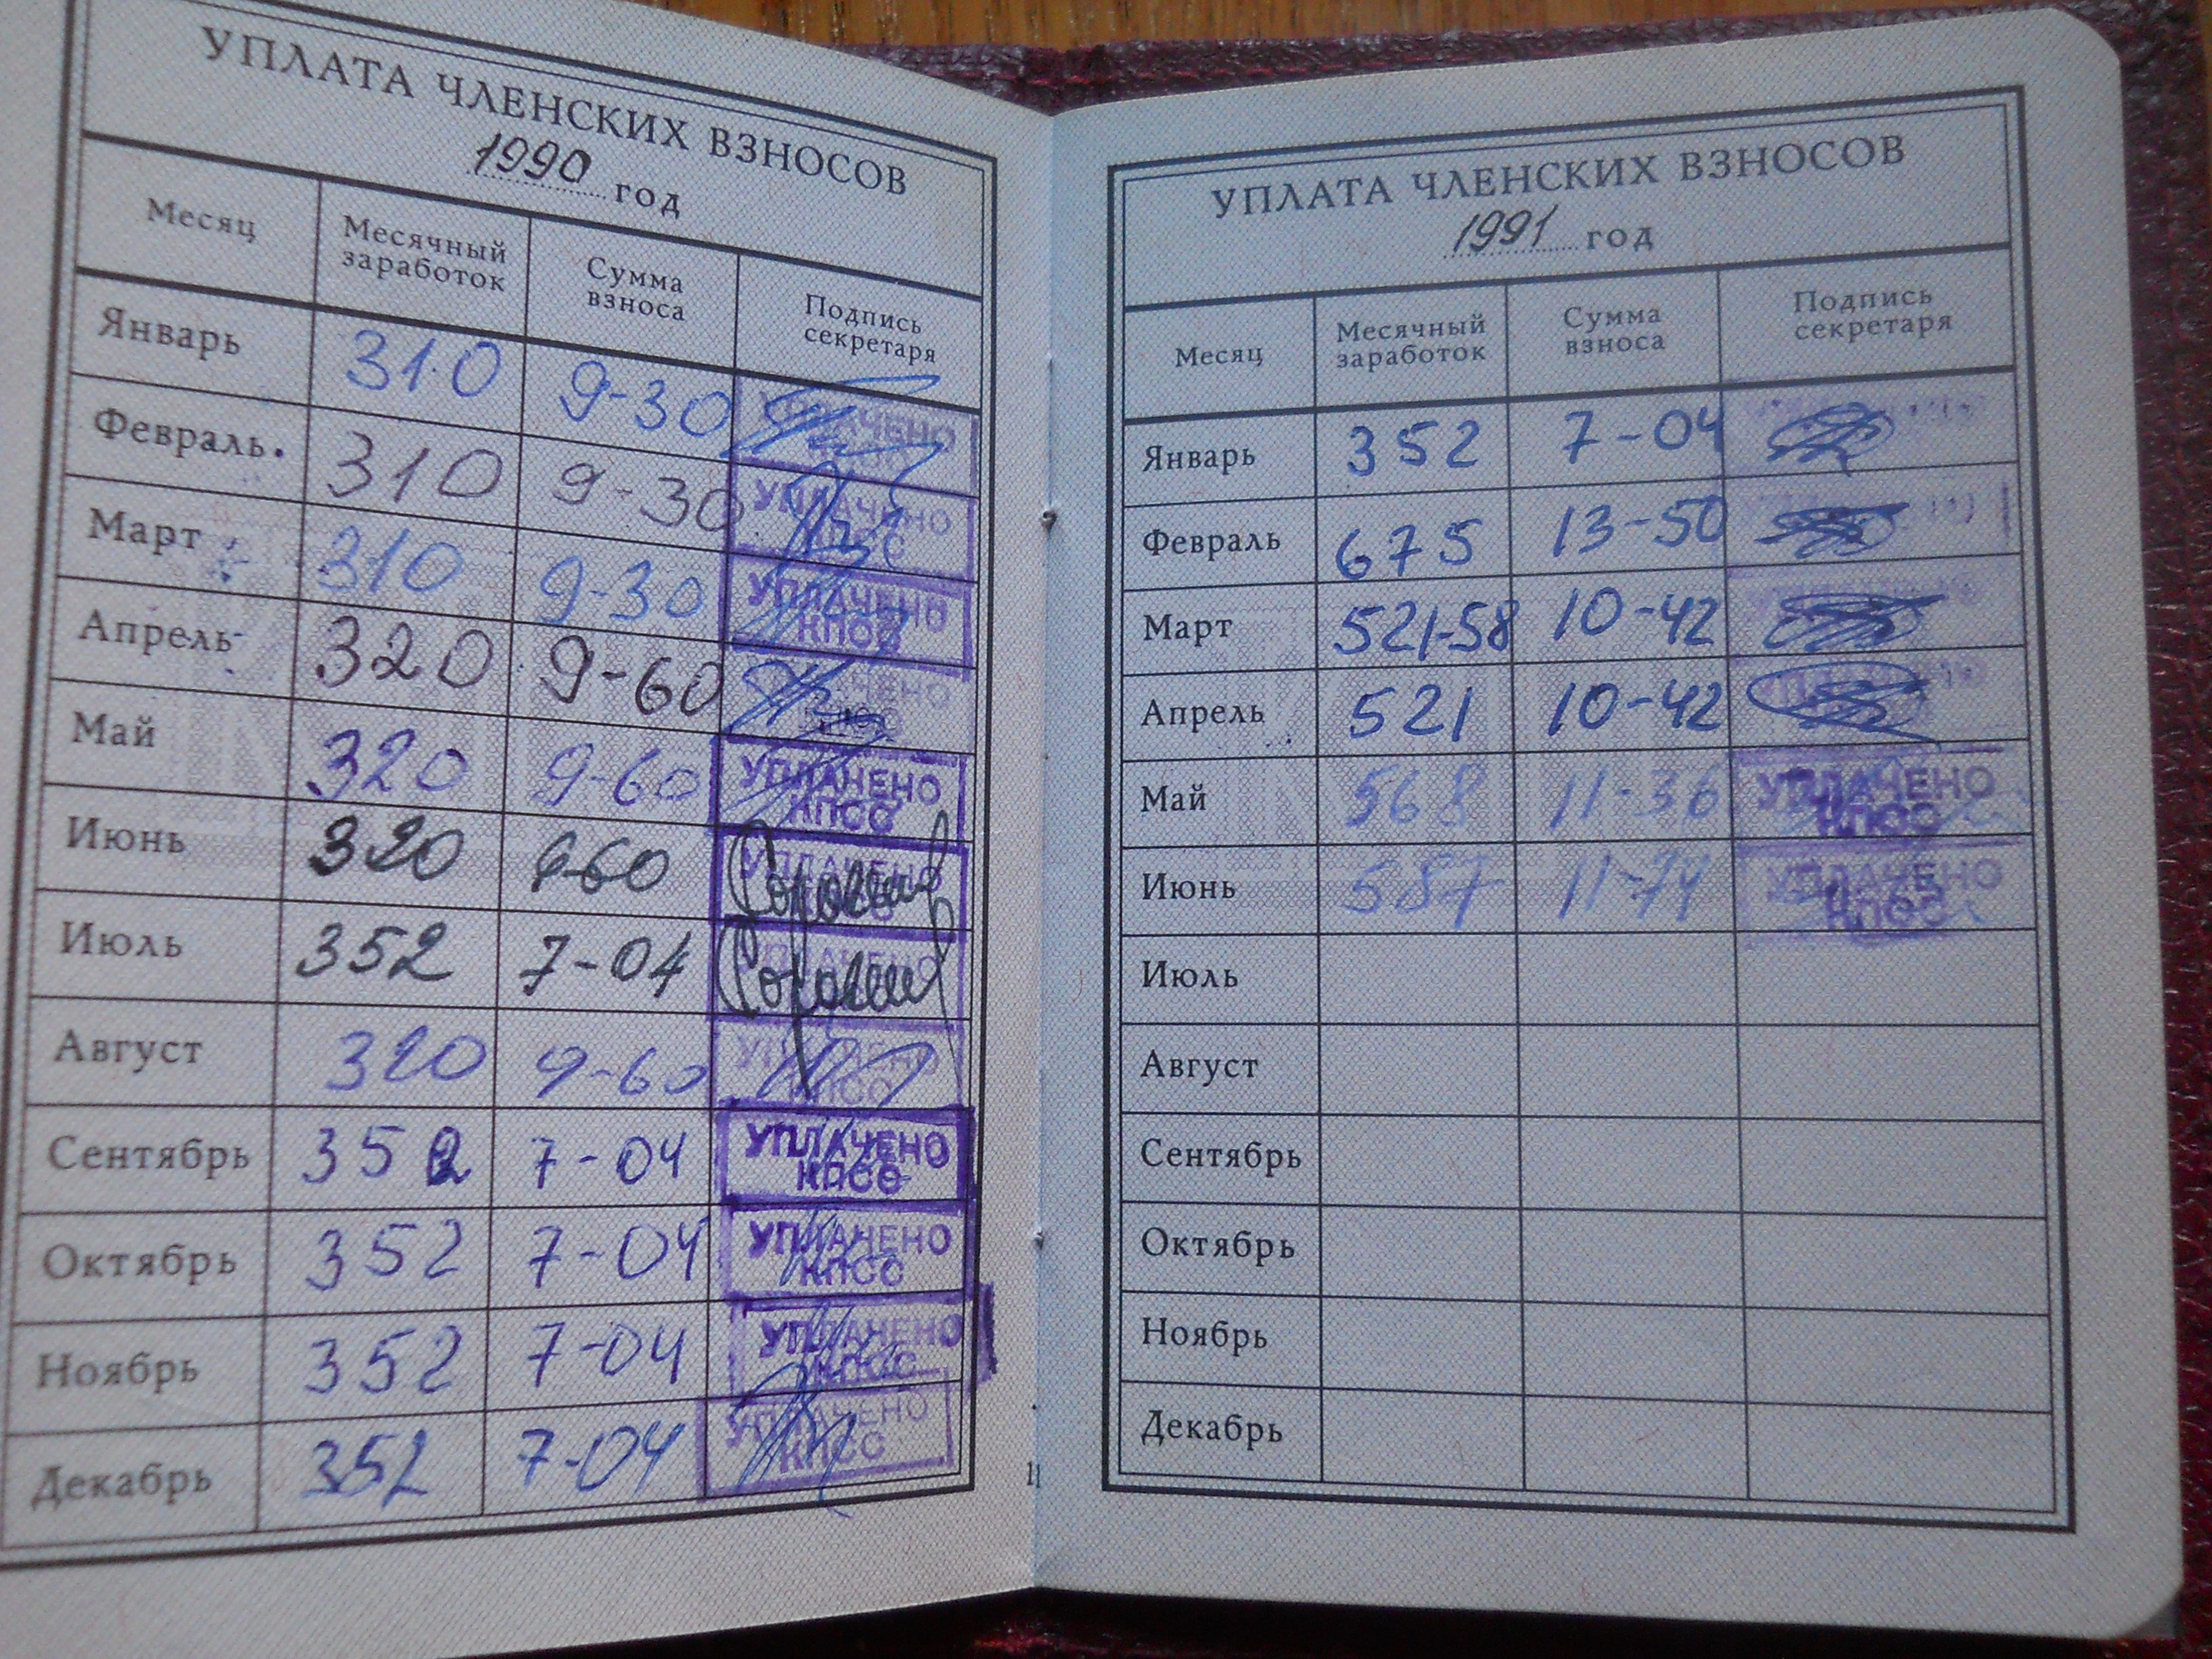 УПЛАТА ЧЛЕНСКИХ ВЗНОСОВ
1990 год
Месяц Месячный заработок Сумма взноса Подпись секретаря
Январь 310 9-30 УПЛАЧЕНО КПСС
Февраль 310 9-30 УПЛАЧЕНО КПСС
Март 310 9-30 УПЛАЧЕНО КПСС
Апрель 320 9-60 УПЛАЧЕНО КПСС
Май 320 9-60 УПЛАЧЕНО КПСС
Июнь 320 9-60 УПЛАЧЕНО
Июль 352 7-04 УПЛАЧЕНО
Август 320 9-60 УПЛАЧЕНО КПСС
Сентябрь 352 7-04 УПЛАЧЕНО КПСС
Октябрь 352 7-04 УПЛАЧЕНО КПСС
Ноябрь 352 7-04 УПЛАЧЕНО КПСС
Декабрь 352 7-04 УПЛАЧЕНО КПСС
УПЛАТА ЧЛЕНСКИХ ВЗНОСОВ
1991 год
Месяц Месячный заработок Сумма взноса Подпись секретаря
Январь 352 7-04
Февраль 675 13-50
Март 521-58 10-42
Апрель 521 10-42
Май 568 11-36 УПЛАЧЕНО КПСС
Июнь 587 11-74 УПЛАЧЕНО КПСС
Июль
Август
Сентябрь
Октябрь
Ноябрь
Декабрь